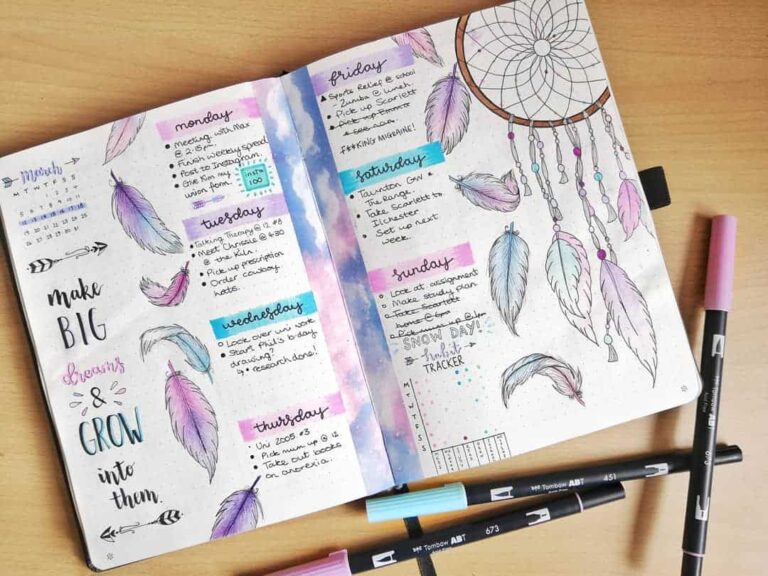 March
M T W T F S S
1 2 3 4
5 6 7 8 9 10 11
12 13 14 15 16 17 18
19 20 21 22 23 24 25
26 27 28 29 30 31
make
BIG
dreams
&
GROW
into
them.
monday
Meeting with Max
@ 2:15pm.
Finish weekly spread
Post to Instagram
Give Kim my
union form.
insta
100
tuesday
Talking Therapy @ 12 #3
Meet Chrissie @ 4:30
@ the Kiln.
Pick up prescription
Order cowboy
hats.
wednesday
Look over uni work
Start Phil's b-day
drawing?
research done!
thursday
Uni 2005 #3
Pick mum up @ 12
Take out books
on anorexia.
friday
Sports Relief @ school
- Zumba @ lunch.
Pick up Scarlett
Pick up
F##KING MIGRAINE!
saturday
Taunton GW &
The Range.
Take Scarlett to
Ilchester
Set up next
week.
sunday
Look at assignment
Make study plan
Take Scarlett
home @ 6pm
Pick mum up @
SNOW DAY!
habit
TRACKER
M
T
W
T
F
S
S
Tombow ABT 451
Tombow ABT 673
673